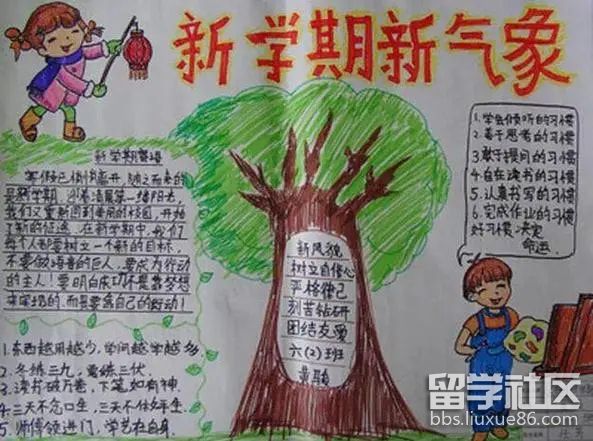 新学期新气象
新学期寄语
寒假已悄悄离开，随之而来的
是新学期，沐着清晨第一缕阳光，
我们又重新回到美丽的校园，开始
了新的征途。在新学期中，我们
每个人都要树立一个新的目标，
不要做语言的巨人，要成为行动
的主人！要明白成功不是靠梦想
来实现的，而是要靠自己的行动！
1.东西越用越少，学问越学越多
2.冬练三九，夏练三伏。
3.读书破万卷，下笔如有神。
4.三天不念口生，三天不做手生。
5.师傅领进门，学艺在自身。
新风貌
树立自信心
严格律己
刻苦钻研
团结友爱
六（2）班
1.学会倾听的习惯
2.善于思考的习惯
3.敢于提问的习惯
4.自在读书的习惯
5.认真书写的习惯
6.完成作业的习惯
好习惯决定
命运.
留学社区
bbs.liuxue86.com